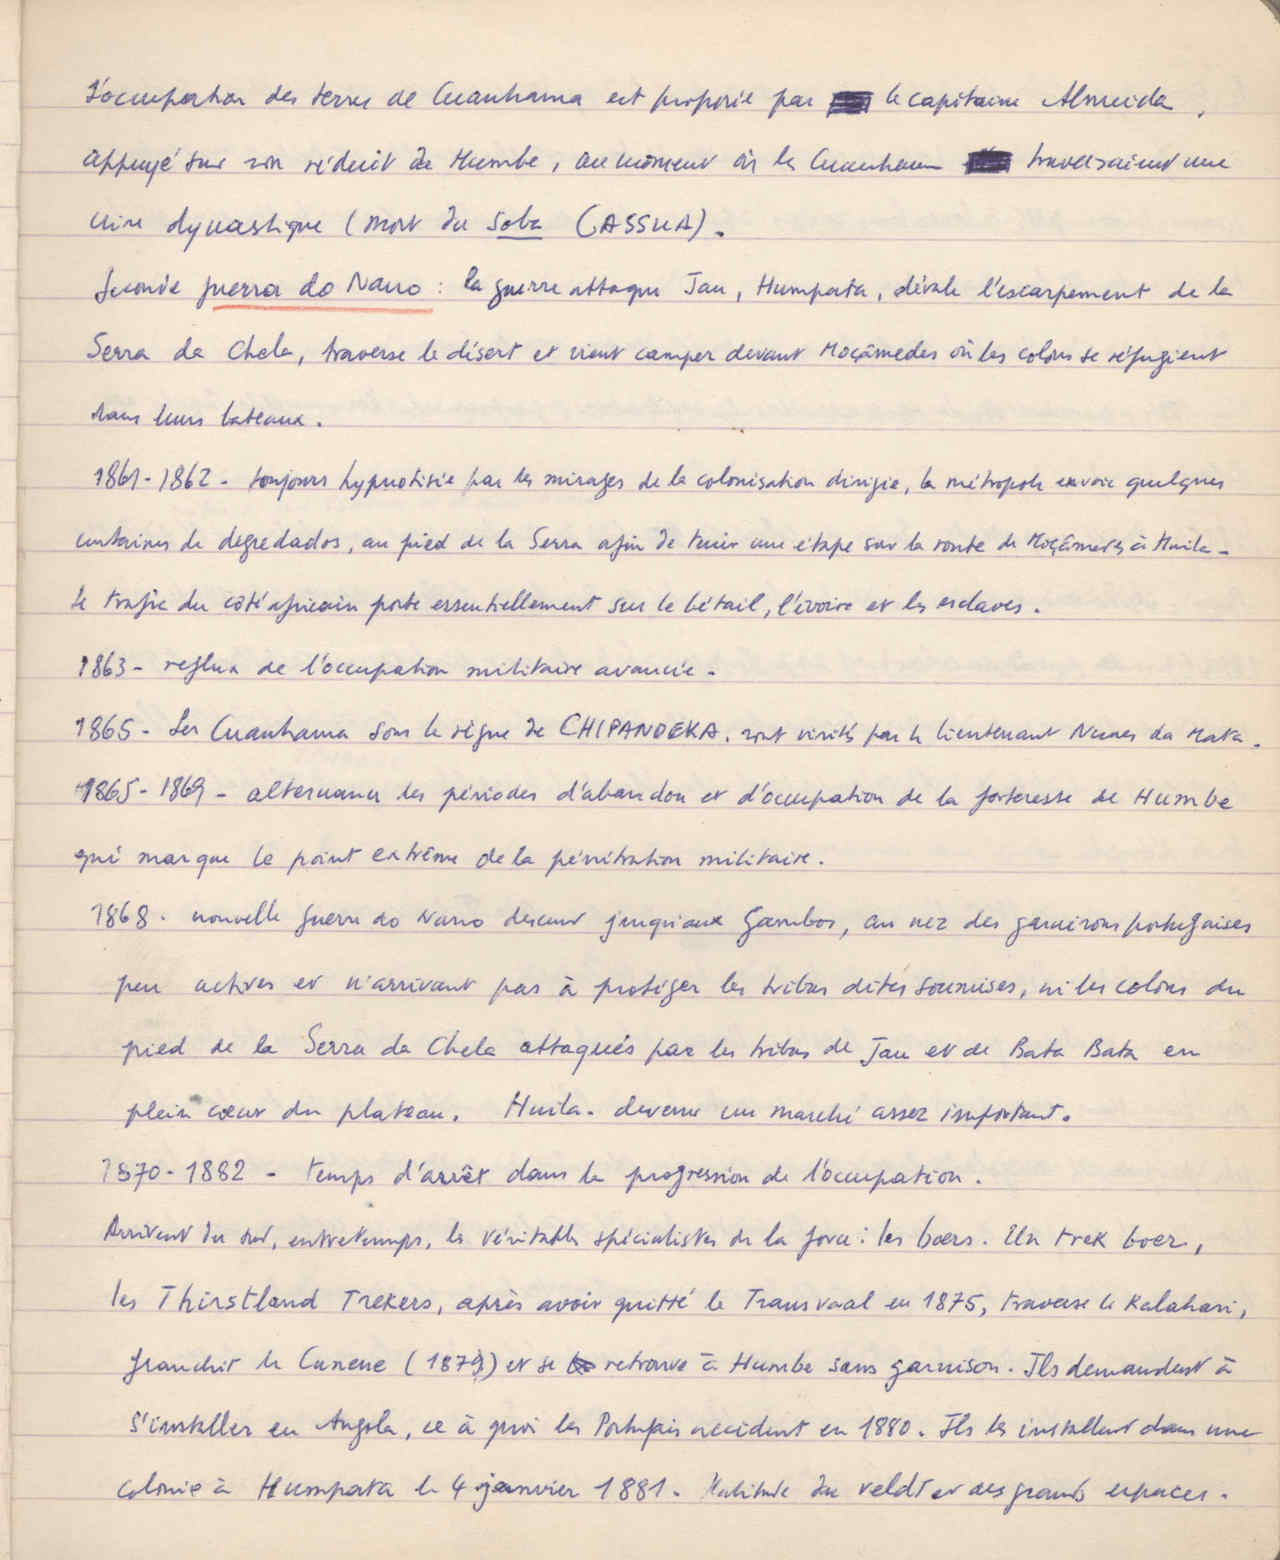 L'occupation des terres de Cuanhama est proposée par le capitaine Almeida,
appuyé sur son réduit de Humbe, au moment où les Cuanhama traversaient une
crise dynastique (mort du Soba (ASSUA).
Seconde guerra do Nano : la guerre attaque Jau, Humpata, dévale l'escarpement de la
Serra da Chela, traverse le désert et vient camper devant Moçâmedes où les colons se réfugient
dans leurs bateaux.
1861-1862 - toujours hypnotisée par les mirages de la colonisation dirigée, la métropole envoie quelques
centaines de degredados, au pied de la Serra afin de tenir une étape sur la route de Moçâmedes à Huila -
Le trafic du côté africain porte essentiellement sur le bétail, l'ivoire et les esclaves.
1863 - reflux de l'occupation militaire avancée.
1865 - Les Cuanhama sous le règne de CHIPANDEKA. sont visités par le lieutenant Nunes da Mata.
1865-1869 - alternance les périodes d'abandon et d'occupation de la forteresse de Humbe
qui marque le point extrême de la pénétration militaire.
1868. nouvelle guerra do Nano descend jusqu'aux Gambos, au nez des garnisons portugaises
peu actives et n'arrivant pas à protéger les tribus dites soumises, ni les colons du
pied de la Serra da Chela attaqués par les tribus de Jau et de Bata Bata en
plein cœur du plateau. Huila - devenue un marché assez important.
1870-1882 - temps d'arrêt dans la progression de l'occupation.
Arrivent du sud, entretemps, les véritables spécialistes de la force : les boers. Un trek boer,
les Thirstland Trekers, après avoir quitté le Transvaal en 1875, traverse le Kalahari,
franchit le Cunene (1879) et se retrouve à Humbe sans garnison. Ils demandent à
s'installer en Angola, ce à quoi les Portugais accèdent en 1880. Ils les installent dans une
colonie à Humpata le 4 janvier 1881. du veldt et des grands espaces.